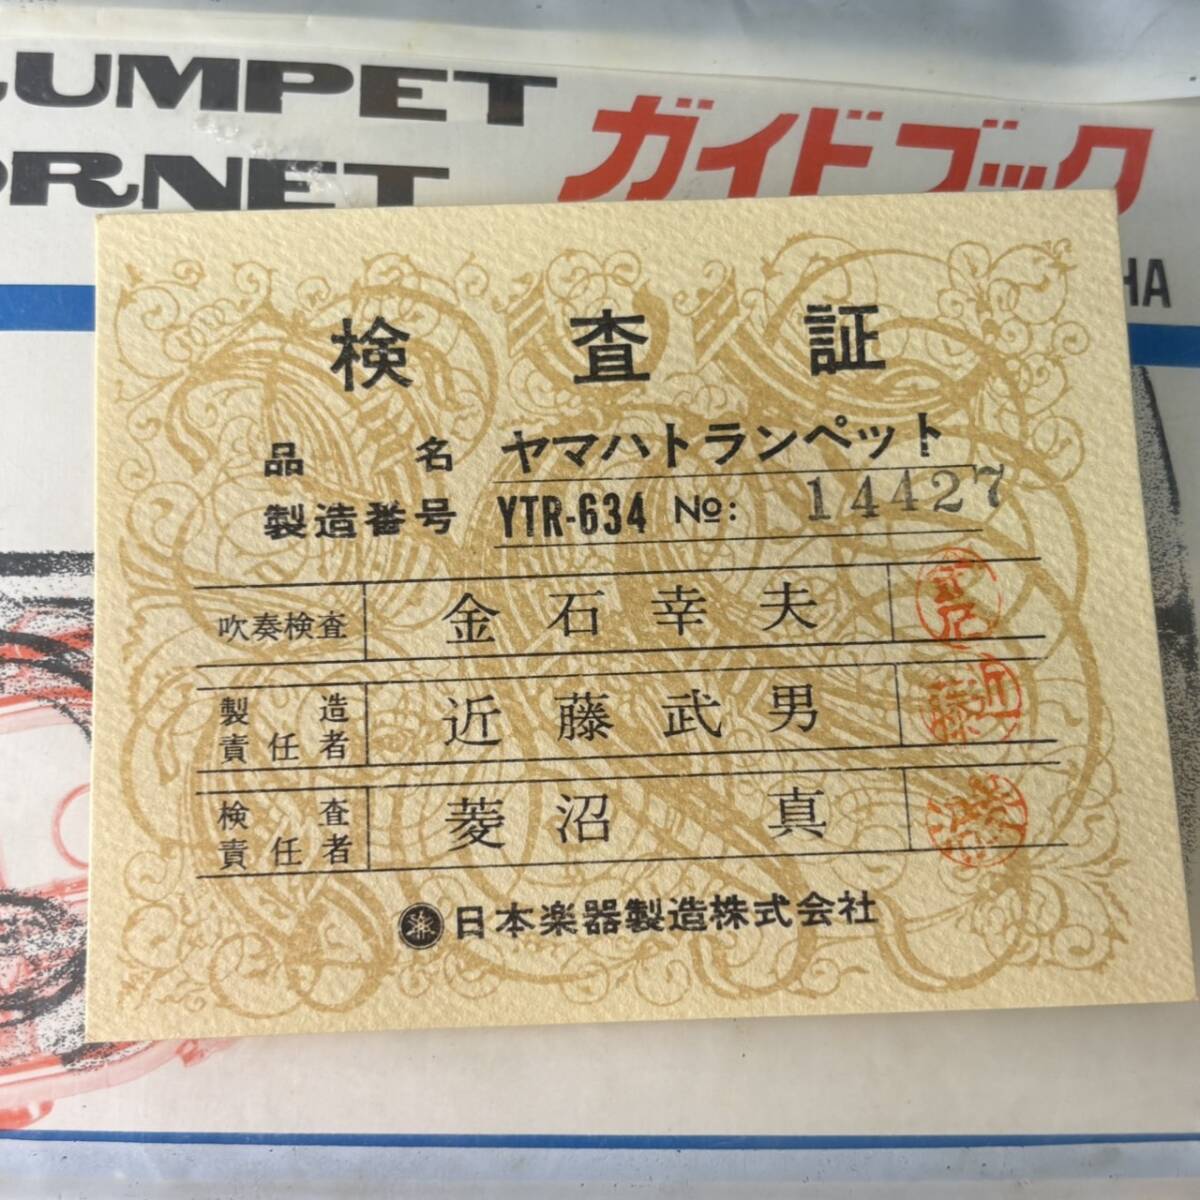 RUMPET
ORNET
ガイドブック
HA
検査証
品名 ヤマハトランペット
製造番号 YTR-634 No: 14427
吹奏検査 金石幸夫
製造責任者 近藤武男 近藤
検査責任者 菱沼真
日本楽器製造株式会社